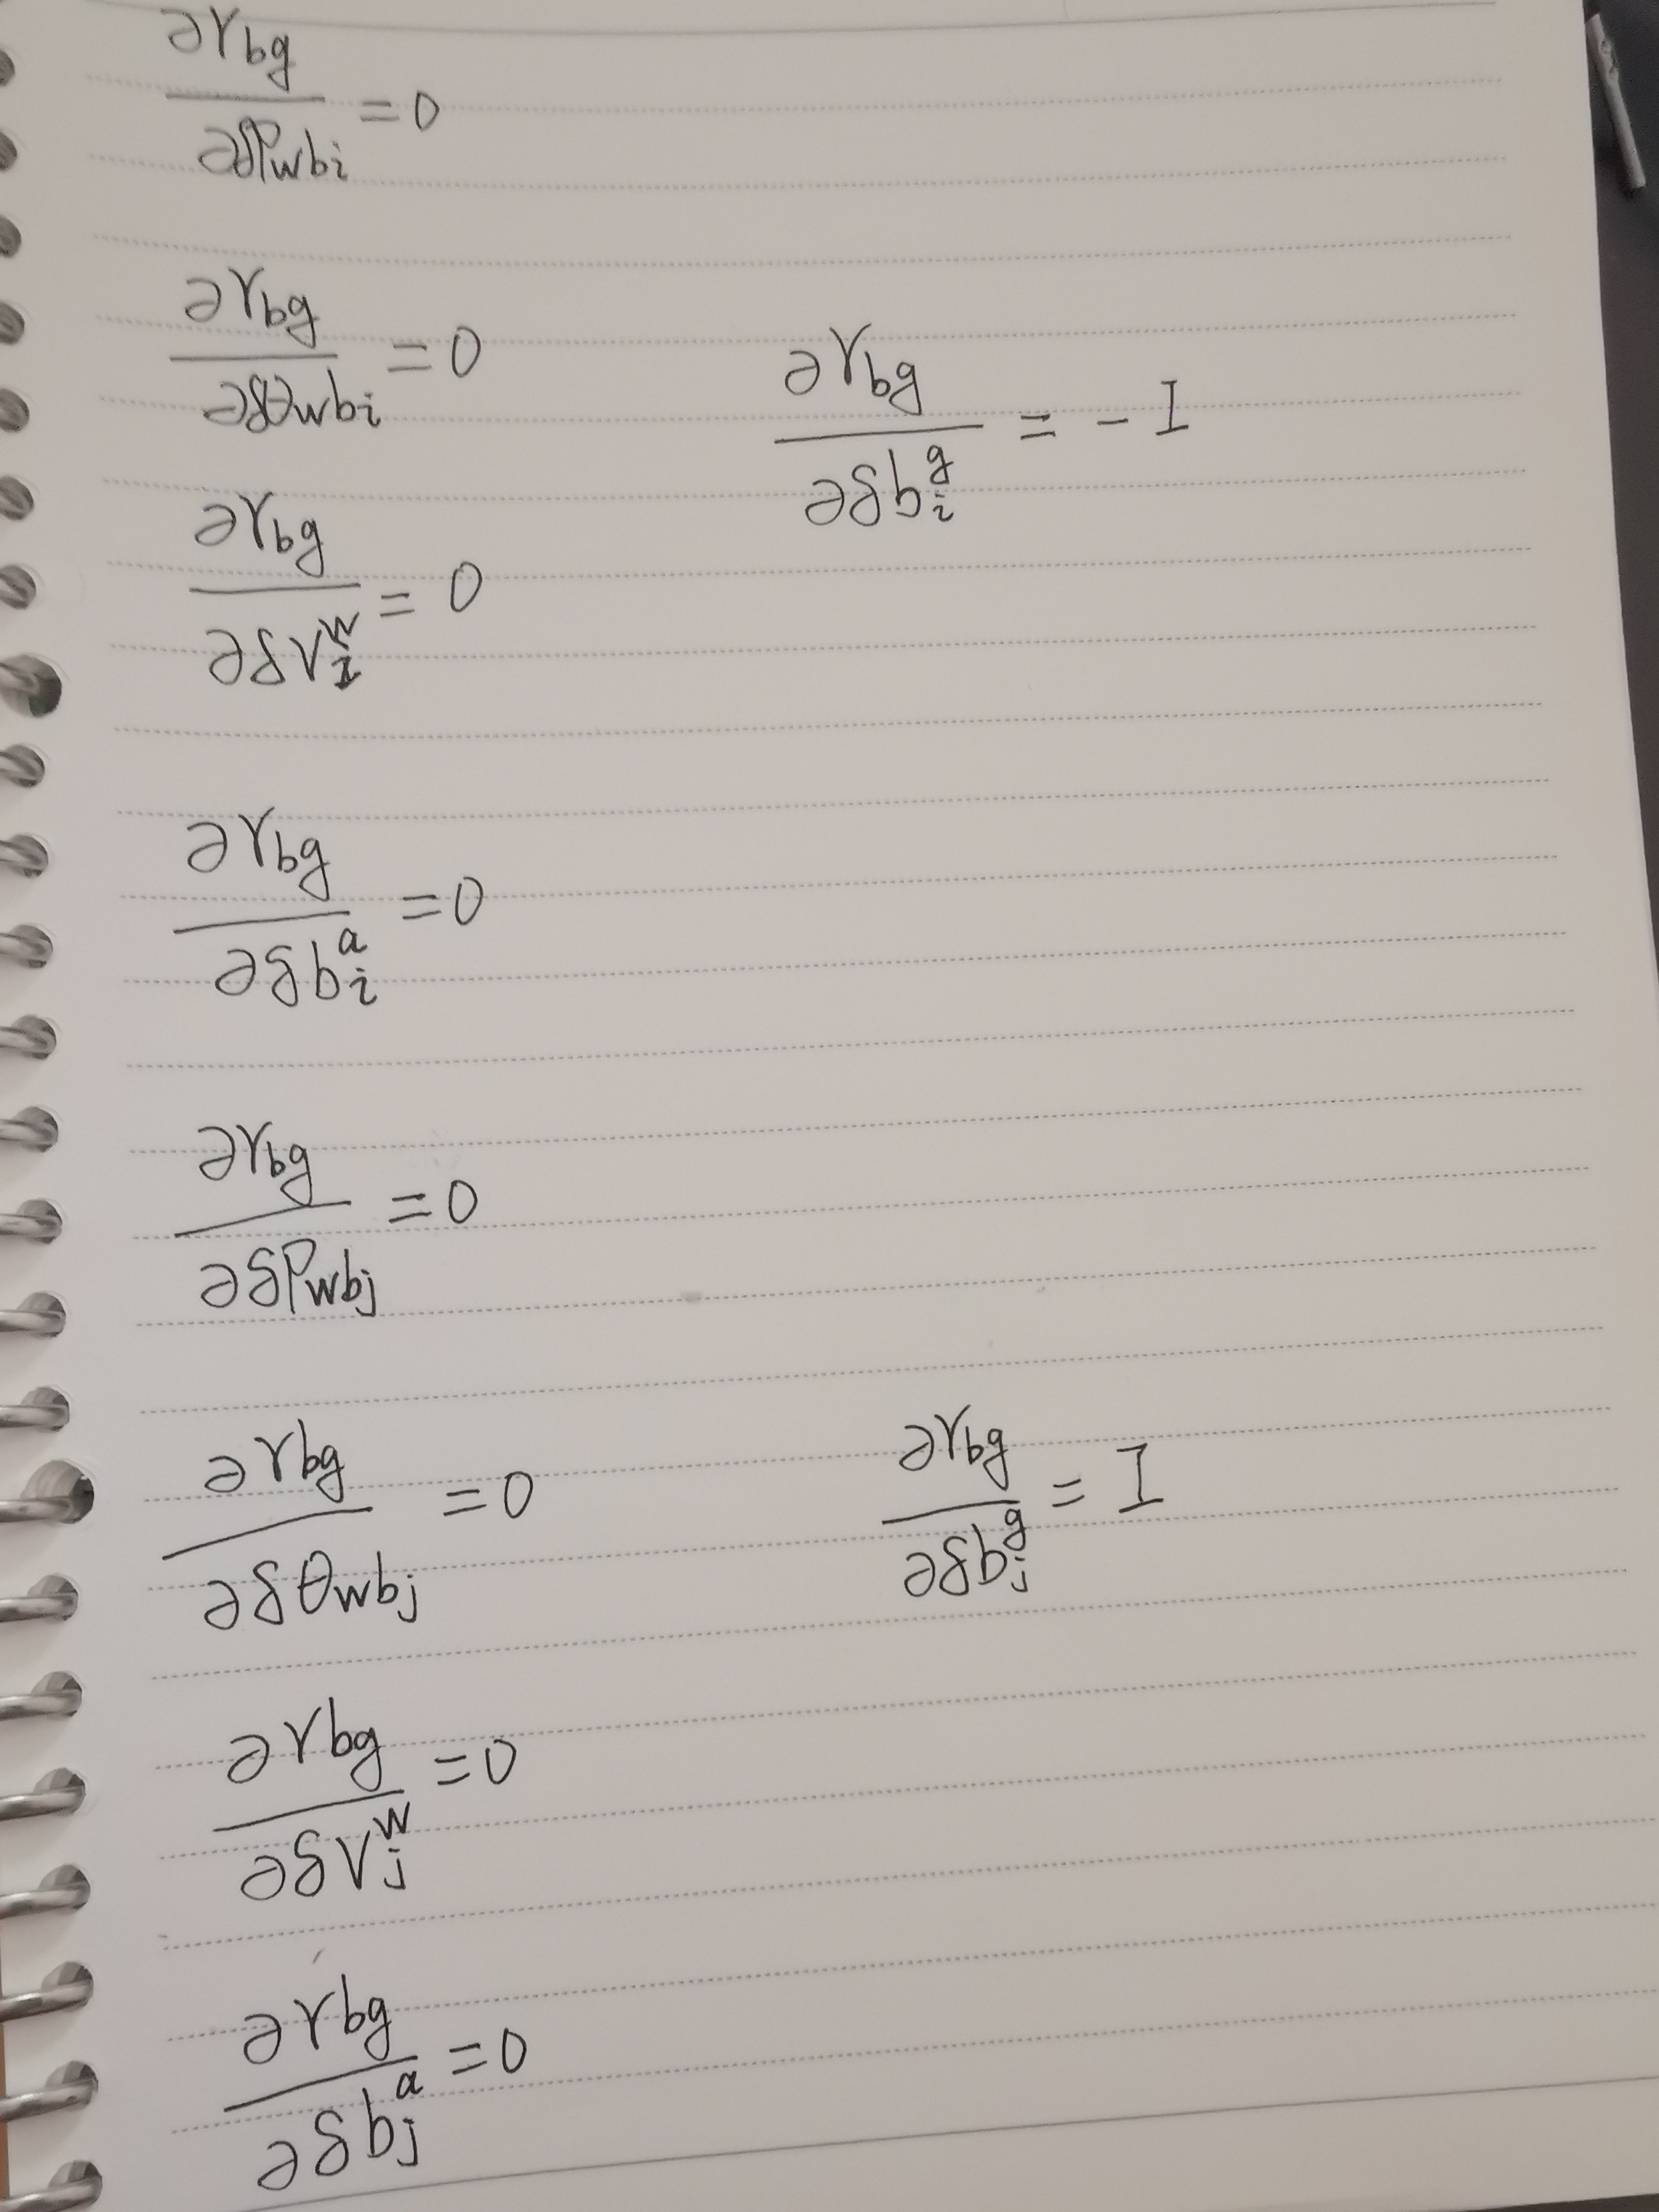 ∂r_bg / ∂δP_wbi = 0
∂r_bg / ∂δθ_wbi = 0
∂r_bg / ∂δb_i^g = - I
∂r_bg / ∂δV_i^w = 0
∂r_bg / ∂δb_i^a = 0
∂r_bg / ∂δP_wbj = 0
∂r_bg / ∂δθ_wbj = 0
∂r_bg / ∂δb_j^g = I
∂r_bg / ∂δV_j^w = 0
∂r_bg / ∂δb_j^a = 0